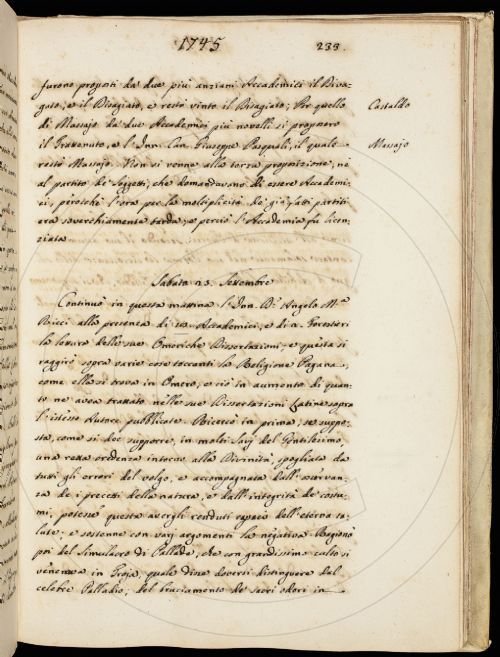 1745
233.
furono proposti da due più anziani Accademici il Diva-
gato, e il Disagiato, e restò vinto il Disagiato; Per quello
Castaldo
di Massajo da due Accademici più novelli si proposero
il Trattenuto, e l'Inn. Can. Giuseppe Pasquali, il quale
Massajo
restò Massajo. Non si venne alla terza proposizione, nè
al partito de' Soggetti, che domandavano di essere Accademi-
ci, perochè l'ora per la moltiplicità de' già fatti partiti
era soverchiamente tarda; e perciò l'Accademia fu licen-
ziata
Sabato 25. Settembre
Continuò in questa mattina l'Inn. D.r Angelo M.a
Ricci alla presenza di Accademici, e di Forestieri
la lettura delle sue Omeriche Dissertazioni; e questa si
raggirò sopra varie cose toccanti la Religione Pagana,
come ella si trova in Omero, e ciò in aumento di quan-
to ne avea trattato nelle sue Dissertazioni Latine sopra
l'istesso Autore pubblicate. Ricercò in prima, se suppo-
sta, come si dee supporre, in molti Savj del Gentilesimo,
una retta credenza intorno alla Divinità, spogliata da
tutti gli errori del volgo, e accompagnata dall'osservan-
za de' precetti della natura, e dall'integrità de' costu-
mi, potesse questa avergli renduti capaci dell'eterna sa-
lute; e sostenne con varj argomenti la negativa. Ragionò
poi del Simulacro di Pallade, che con grandissimo culto si
venerava in Troja, quale disse doversi distinguere dal
celebre Palladio; del bruciamento de' sacri odori in